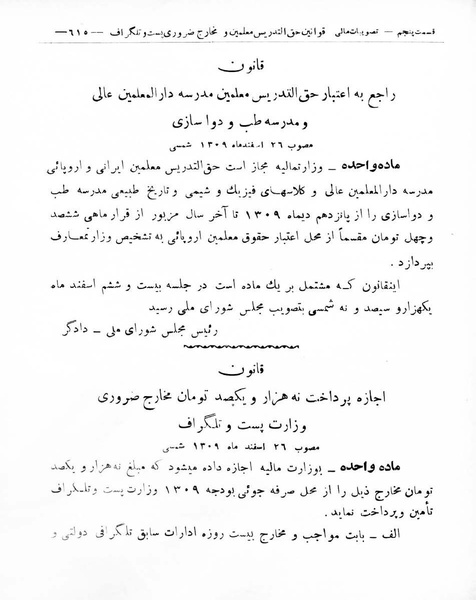 قسمت پنجم — تصویبات مالی قوانین حق‌التدریس معلمین و مخارج ضروری پست و تلگراف —۶۱۵—
قانون
راجع به اعتبار حق‌التدریس معلمین مدرسه دارالمعلمین عالی
و مدرسه طب و دواسازی
مصوب ۲۶ اسفندماه ۱۳۰۹ شمسی
ماده واحده — وزارتمالیه مجاز است حق‌التدریس معلمین ایرانی و اروپائی
مدرسه دارالمعلمین عالی و کلاسهای فیزیک و شیمی و تاریخ طبیعی مدرسه طب
و دواسازی را از پانزدهم دیماه ۱۳۰۹ تا آخر سال مزبور از قرار ماهی ششصد
وچهل تومان مقسماً از محل اعتبار حقوق معلمین اروپائی به تشخیص وزارتمعارف
بپردازد .
اینقانون که مشتمل بر یك ماده است در جلسه بیست و ششم اسفند ماه
یکهزارو سیصد و نه شمسی بتصویب مجلس شورای ملی رسید
رئیس مجلس شورای ملی — دادگر
قانون
اجازه پرداخت نه هزار و یکصد تومان مخارج ضروری
وزارت پست و تلگراف
مصوب ۲۶ اسفند ماه ۱۳۰۹ شمسی
ماده واحده — بوزارت مالیه اجازه داده میشود که مبلغ نه هزار و یکصد
تومان مخارج ذیل را از محل صرفه جوئی بودجه ۱۳۰۹ وزارت پست وتلگراف
تأمین وپرداخت نماید .
الف — بابت مواجب و مخارج بیست روزه ادارات سابق تلگرافی دولتی و